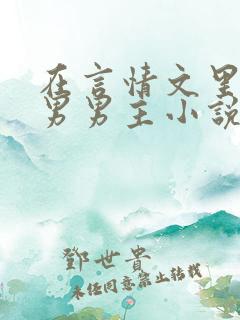 在言情文里
男男主小说
鄧世貴
未经同意禁止转载